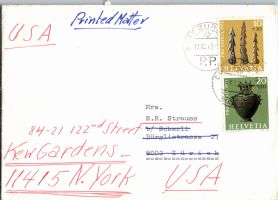 Printed Matter
USA
P.P.
10
+10
HELVETIA
20
HELVETIA
Mrs.
H.R. Strauss
c/o Eckerli
8002 Zürich
84-21 122nd Street
Kew Gardens
11415 N. York
USA